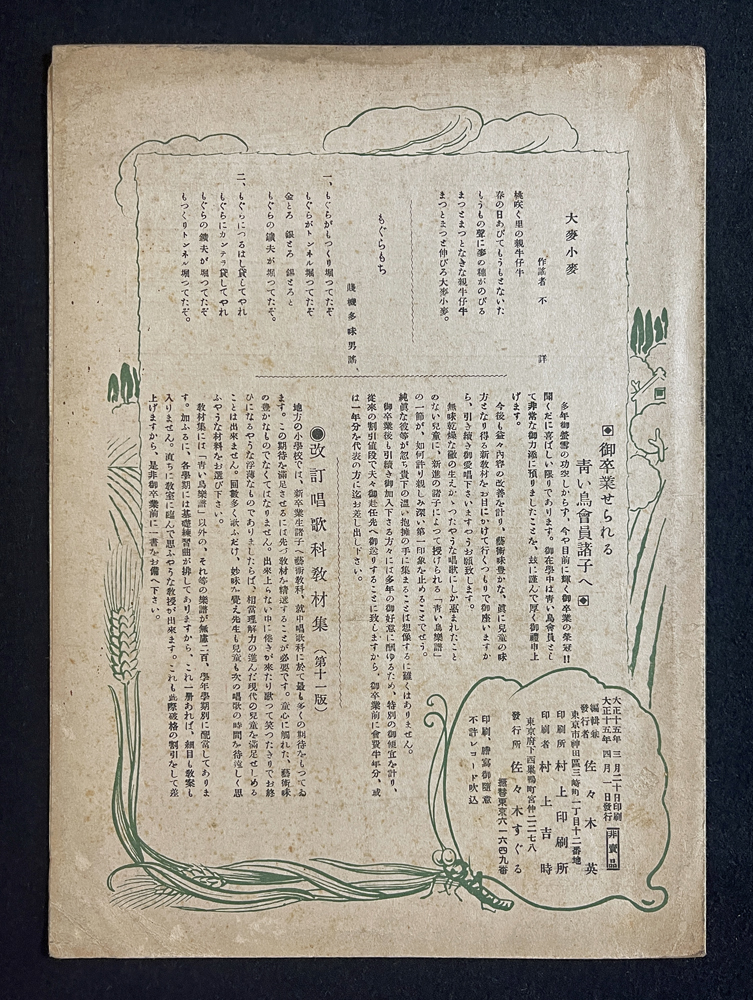 大麥小麥
作謠者 不詳
桃咲く里の親牛仔牛
春の日あびてもうもとないた
もうもの聲に麥の穗がのびる
まつとまつとなきな親牛仔牛
まつとまつと伸びろ大麥小麥。
もぐらもち
賤機多味男謠
一、もぐらがもつくり堀つてたぞ
もぐらがトンネル堀つてたぞ
金とろ 銀とろ 銀とろと
もぐらの鑛夫が堀つてたぞ。
二、もぐらにつるはし貸してやれ
もぐらにカンテラ貸してやれ
もぐらの鑛夫が堀つてたぞ
もつくりトンネル堀つてたぞ。
御卒業せられる
青い鳥會員諸子へ
多年御螢雪の功空しからず、今や目前に輝く御卒業の榮冠!!
聞くだに喜ばしい限りであります。御在學中は青い鳥會員とし
て非常な御力添に預りましたことを、玆に謹んで厚く御禮申上
げます。
今後も益々内容の改善を計り、藝術味豊かな、眞に兒童の味
方となり得る新教材をお目にかけて行くつもりで御座いますか
ら、引き續き御愛唱下さいますやうお願致します。
無味乾燥な黴の生えかゝつたやうな唱歌にしか惠まれたこと
のない兒童に、新進の諸子によつて授けられる「青い鳥樂譜」
の一節が、如何許り親しみ深い第一印象を止めることでせう。
純眞な彼等が忽ち貴下の溫い抱擁の手に集まることは想像するに難くはありません。
御卒業後も引續き御加入下さる方々には多年の御好意に酬ゆるため、特別の御便宜を計り、
從來の割引値段で夫々御赴任先へ御送りすることに致しますから、御卒業前に會費半年分、或
は一年分を代表の方に迄お差し出し下さい。
●改訂唱歌科教材集(第十一版)
地方の小學校では、新卒業生諸子へ藝術教科、就中唱歌科に於て最も多くの期待をもつてゐ
ます。この期待を滿足させるには先づ教材を精選することが必要です。童心に觸れた、藝術味
の豊かなものでなくてはなりません。出來上らない中に倦きが來たり歌つて笑つたきりでお終
ひになるやうな浮薄なものでありましたらば、相當理解力の進んだ現代の兒童を滿足せしめる
ことは出來ません。回數多く歌ふだけ、妙味を覺え先生も兒童も次の唱歌の時間を待遠しく思
ふやうな材料をお選び下さい。
教材集には「青い鳥樂譜」以外の、それ等の樂譜が無慮二百、學年學期別に配當してありま
す。加ふるに、各學期には基礎練習曲が排してありますから、これ一册あれば、細目も教案も
入りません。直ちに教室に臨んで思ふやうな教授が出來ます。これも此際破格の割引をして差
上げますから、是非御卒業前に一書をお備へ下さい。
大正十五年 三月二十日印刷
大正十五年 四月 一日發行
非賣品
編輯兼發行者 佐々木英
東京市神田區三崎町一丁目十二番地
印刷所 村上印刷所
印刷者 村上吉時
東京府下西巢鴨町宮仲二二七八
發行所 佐々木すぐる
振替東京六一六四九番
印刷、謄寫御隨意
不許レコード吹込